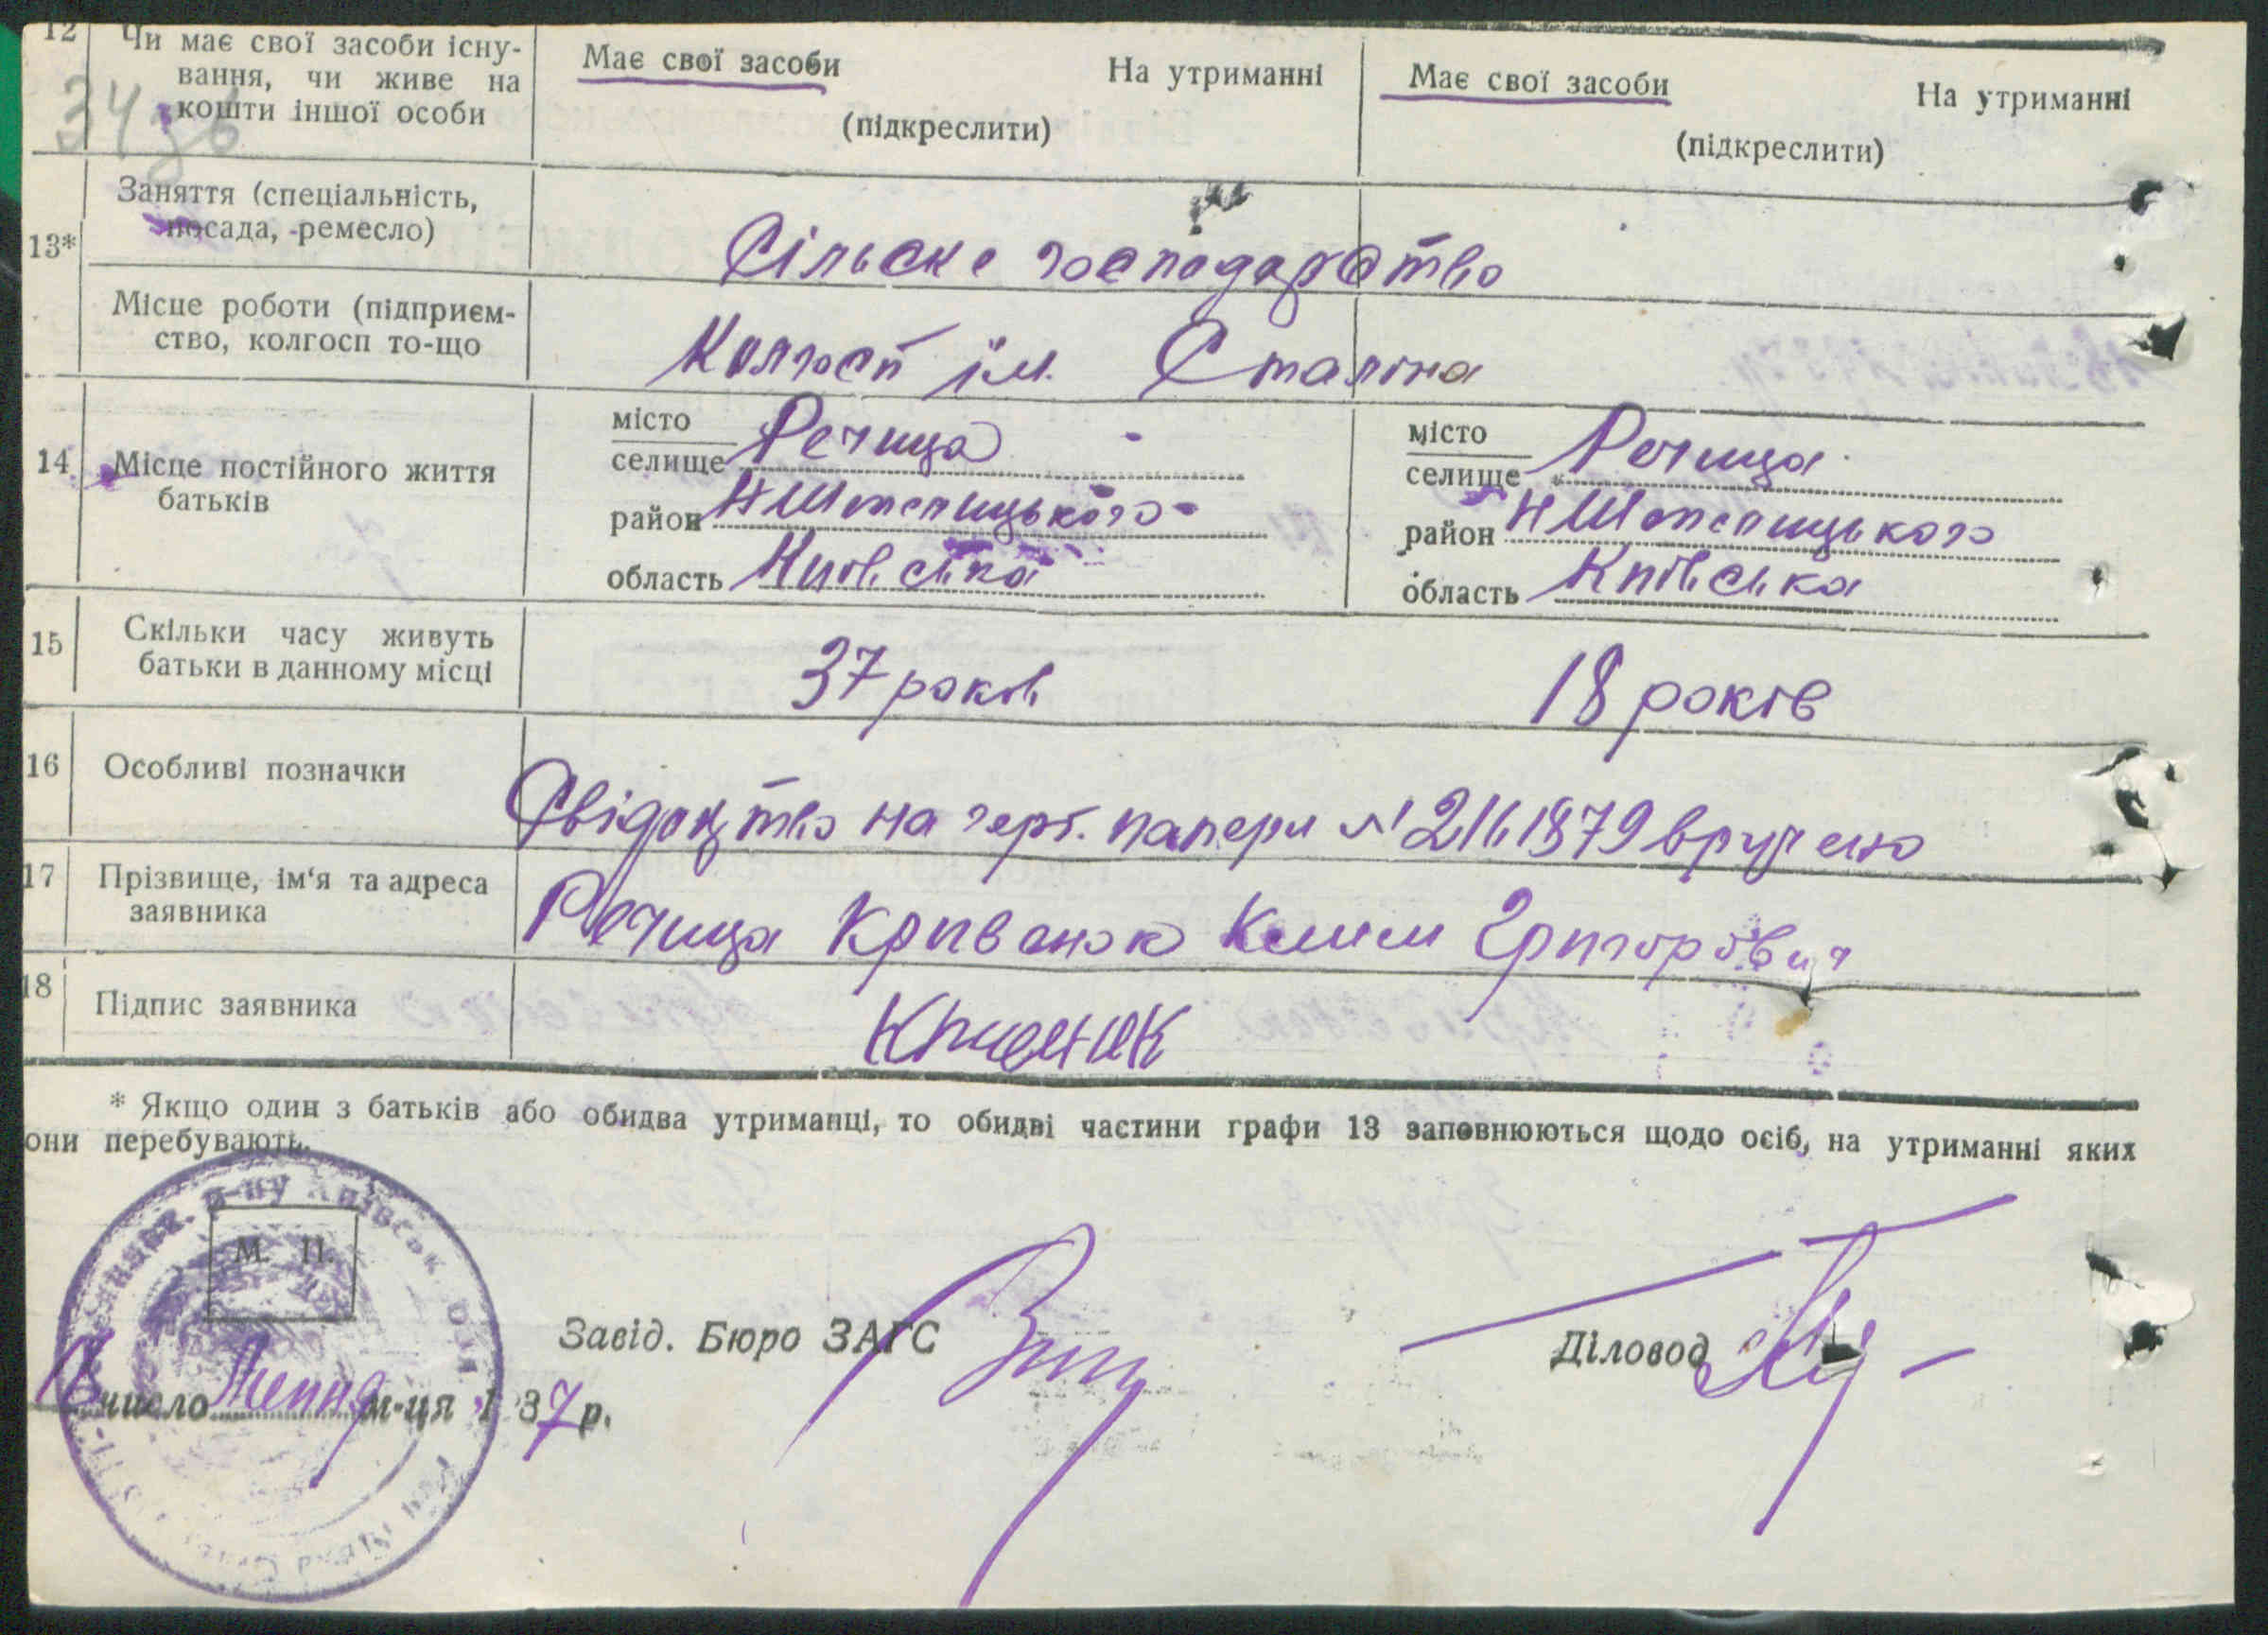 12 Чи має свої засоби існу-
вання, чи живе на
кошти іншої особи
Має свої засоби На утриманні
(підкреслити)
Має свої засоби На утриманні
(підкреслити)
Заняття (спеціальність,
посада, ремесло)
Сільське господарство
13*
Місце роботи (підприєм-
ство, колгосп то-що
Колгосп ім. Сталіна
14 Місце постійного життя
батьків
місто
селище Речица
район НШепелицького
область Київська
місто
селище Речица
район НШепелицького
область Київська
15 Скільки часу живуть
батьки в данному місці
37 років 18 років
16 Особливі позначки
Свідоцтво на герб. папери № 2161879 вручено
17 Прізвище, ім‘я та адреса
заявника
Речица Кривенок Клим Григорович
18 Підпис заявника
* Якщо один з батьків або обидва утриманці, то обидві частини графи 13 заповнюються щодо осіб, на утриманні яких
они перебувають.
р-ну Київськ. Обл.
М. П.
Завід. Бюро ЗАГС
Діловод
число Липня м-ця 1937р.